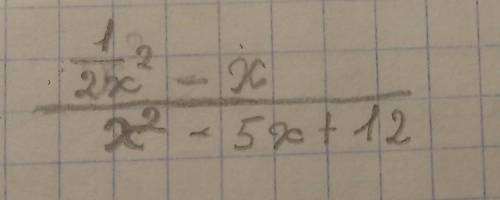 1
2x² - x
x² - 5x + 12